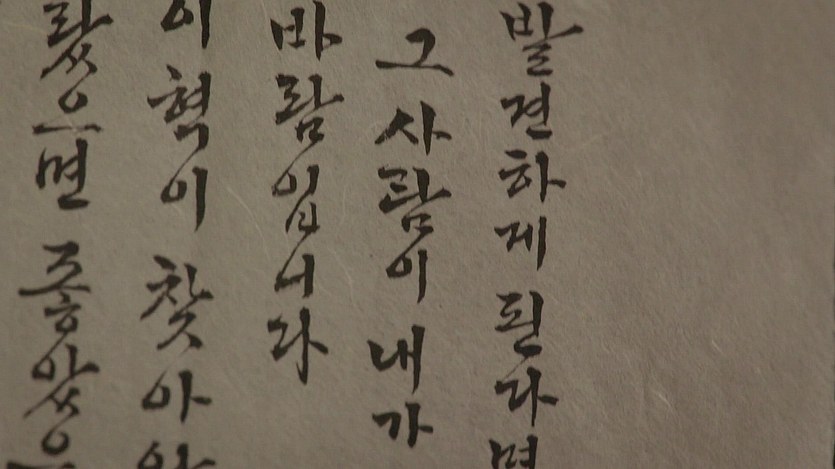 발견하게 된다면
그 사람이 내가
바람입니다
이 혁이 찾아
랐으면 좋았을